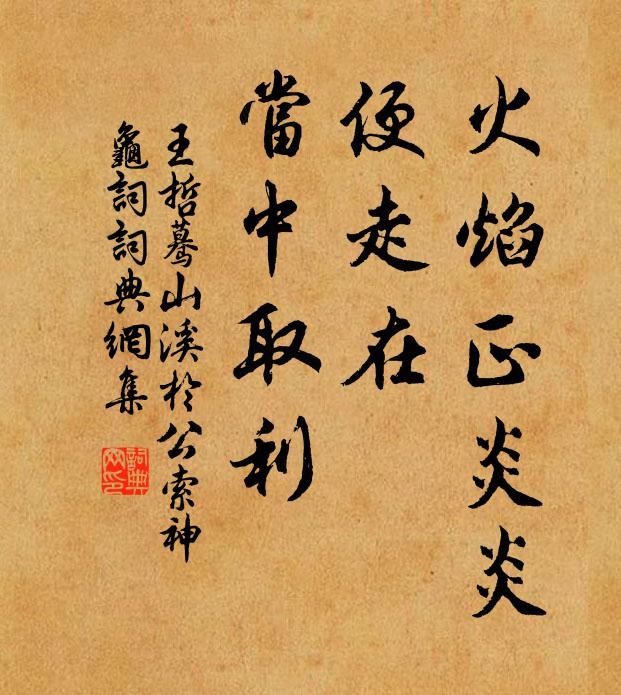 火焰正炎炎
便走在
當中取利
王哲驀山溪於公索神
龜詞詞典網集
詞典網印